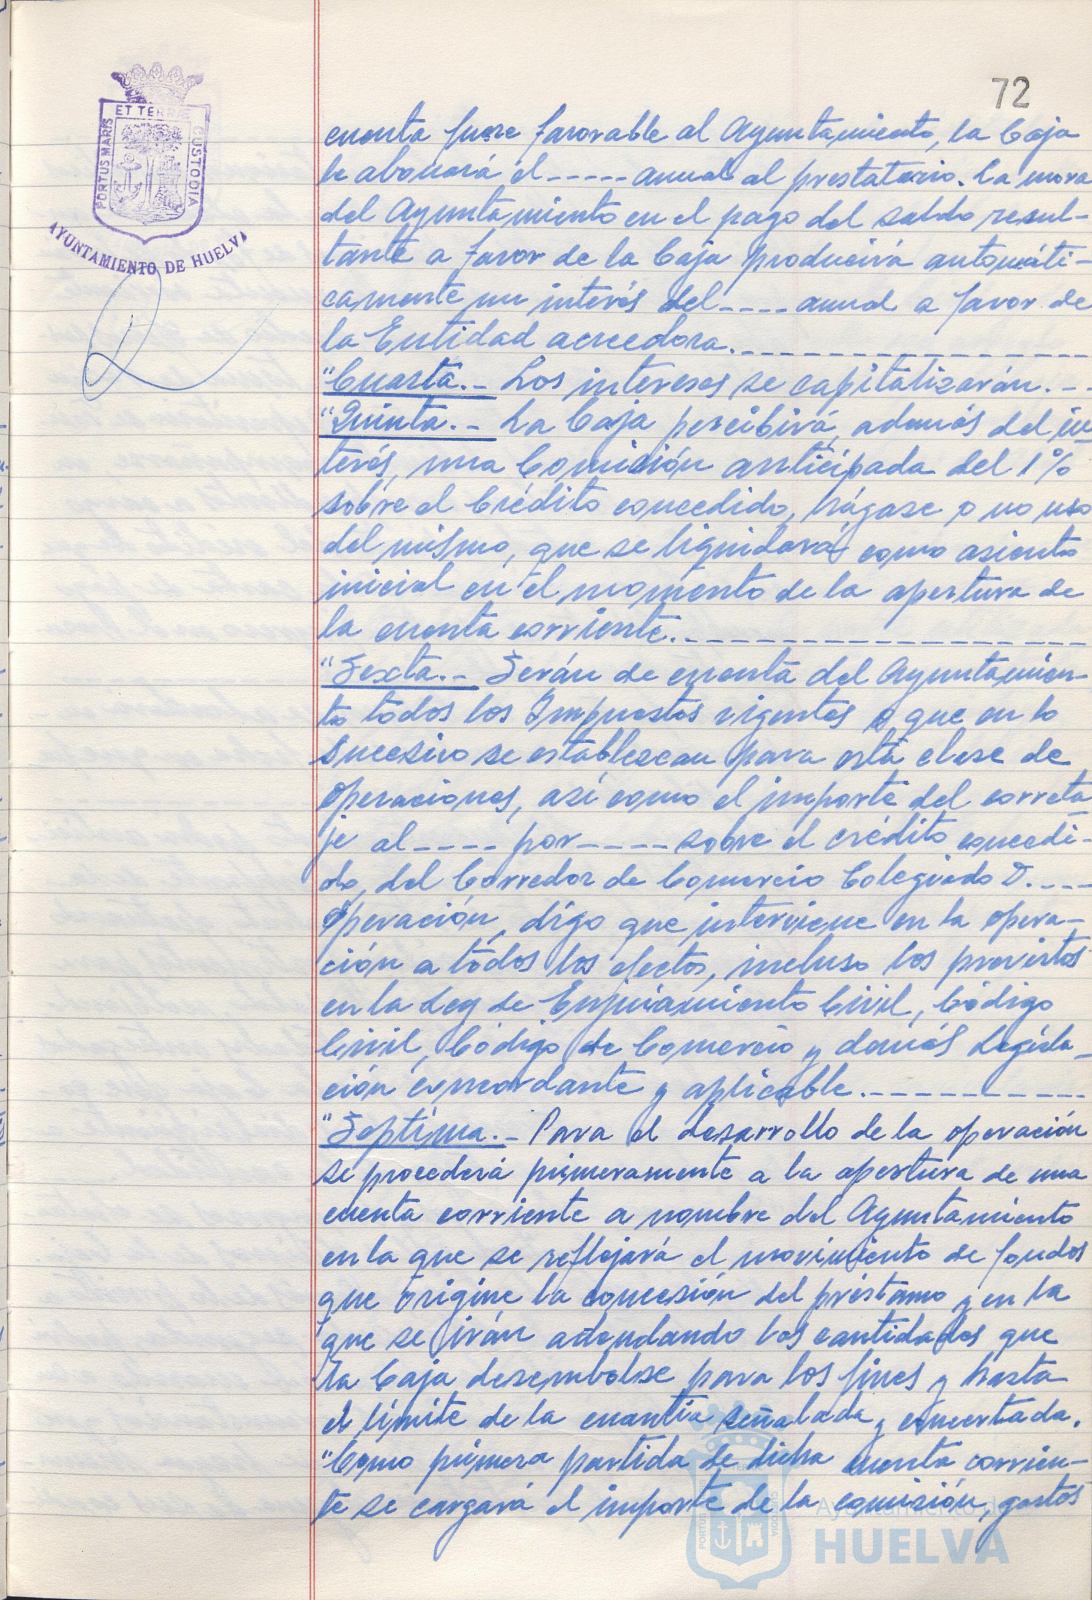 72
ET TERRÆ
PORTUS MARIS
CUSTODIA
AYUNTAMIENTO DE HUELVA
cuenta fuese favorable al Ayuntamiento, la Caja
le abonará el ----- anual al prestatario. La mora
del Ayuntamiento en el pago del saldo resul-
tante a favor de la Caja producirá automáti-
camente un interés del ---- anual a favor de
la Entidad acreedora. -----------------
"Cuarta.- Los intereses se capitalizarán. -
"Quinta.- La Caja percibirá, además del in
terés, una Comisión anticipada del 1%
sobre el Crédito concedido, hágase o no uso
del mismo, que se liquidará como asiento
inicial en el momento de la apertura de
la cuenta corriente. --------------------
"Sexta.- Serán de cuenta del Ayuntamien-
to todos los Impuestos vigentes o que en lo
sucesivo se establezcan para esta clase de
operaciones, así como el importe del correta
je al ---- por ---- sobre el crédito concedi-
do, del Corredor de Comercio Colegiado D. ---
operación, digo que interviene en la opera-
ción a todos los efectos, incluso los previstos
en la Ley de Enjuiciamiento Civil, Código
Civil, Código de Comercio y demás Legisla-
ción concordante y aplicable. -----------
"Septima.- Para el desarrollo de la operación
se procederá primeramente a la apertura de una
cuenta corriente a nombre del Ayuntamiento
en la que se reflejará el movimiento de fondos
que origine la concesión del préstamo y en la
que se irán adeudando las cantidades que
la Caja desembolse para los fines y hasta
el límite de la cuantía señalada y concertada.
"Como primera partida de dicha cuenta corrien-
te se cargará el importe de la comisión, gastos
Ayuntamiento de
HUELVA